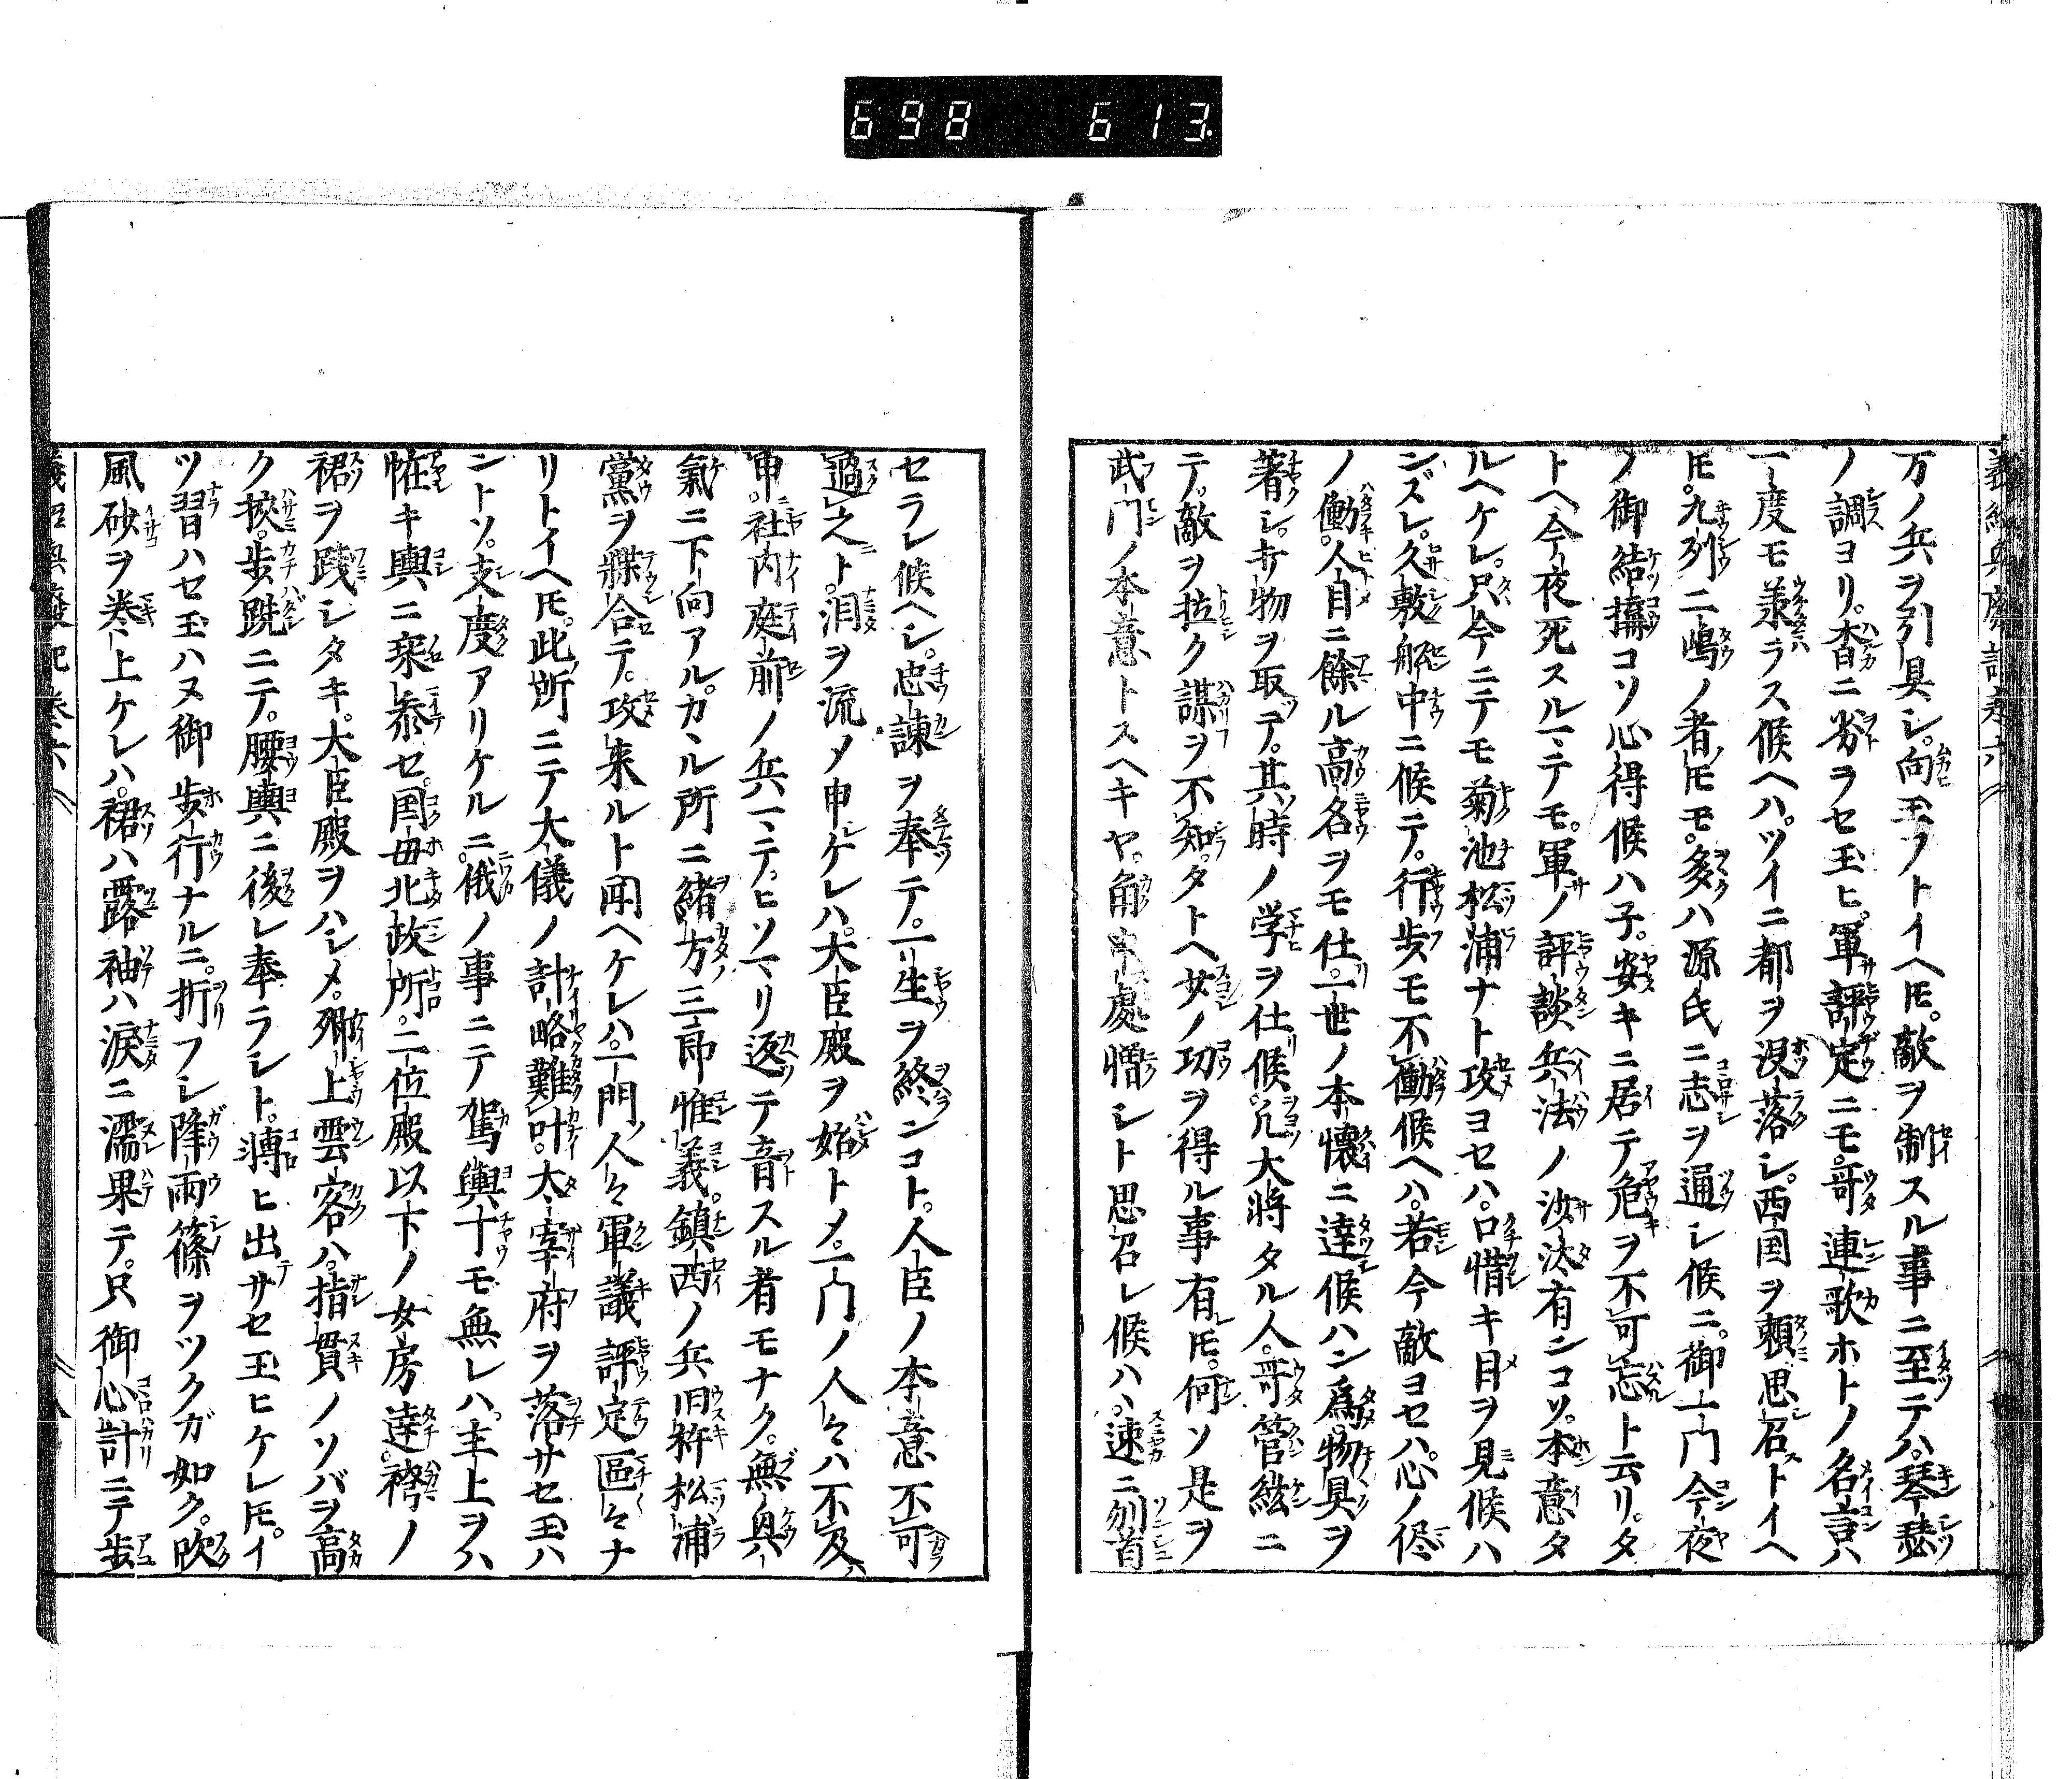 698 613
万ノ兵ヲ引具シ。向玉フトイヘ𪜈。敵ヲ制スル事ニ至テハ。琴瑟
ノ調ヨリ。杳ニ劣ヲセ玉ヒ。軍評定ニモ。哥連歌ホトノ名言ハ
一度モ羕ラス候ヘハ。ツイニ都ヲ没落シ。西国ヲ頼思召トイヘ
𪜈。九列ニ嶋ノ者𪜈モ。多ハ源氏ニ志ヲ通シ候ニ。御一門今夜
ノ御結搆コソ心得候ハ子。安キニ居テ危ヲ不可忘ト云リ。タ
トヘ今夜死スルニテモ。軍ノ評談兵法ノ沙汰有ンコソ。本意タ
ルヘケレ。只今ニテモ菊池松浦ナト攻ヨセハ。口惜キ目ヲ見候ハ
ンズレ。久敷船中ニ候テ。行歩モ不働候ヘハ。若今敵ヨセハ。心ノ侭
ノ働。人目ニ餘ル高名ヲモ仕リ。一世ノ本懐ニ達候ハン爲。物具ヲ
著シ。打物ヲ取テ。其時ノ学ヲ仕リ候。凡大将タル人。哥管絃ニ
テ。敵ヲ拉ク謀ヲ不知。タトヘ女ノ功ヲ得ル事有𪜈。何ソ是ヲ
武門ノ本意トスヘキヤ。角申處憎シト思召レ候ハヽ。速ニ刎首
セラレ候ヘシ。忠諫ヲ奉テ。一生ヲ終ンコト。人臣ノ本意不可
過之ト。泪ヲ流メ申ケレハ。大臣殿ヲ始トメ。一门ノ人々ハ不及
申。社内庭前ノ兵ニテ。ヒソマリ返テ音スル者モナク。無興
氣ニ下向アル。カヽル所ニ緒方三郎惟義。鎮西ノ兵旧杵松浦
黨ヲ牒合テ。攻来ルト聞ヘケレハ。一門人々軍議評定區々ナ
リトイヘ𪜈。此所ニテ大儀ノ計略難叶。大宰府ヲ落サセ玉ハ
ントソ。支度アリケルニ。俄ノ事ニテ駕輿十モ無レハ。主上ヲハ
恠キ輿ニ乗参セ。国母北政所。二位殿以下ノ女房達。袴ノ
裙ヲ践シタキ。大臣殿ヲハシメ。卿上雲客ハ。指貫ノソバヲ高
ク挾。歩跣ニテ。腰輿ニ後レ奉ラシト。漙ヒ出サセ玉ヒケレ𪜈。イ
ツ習ハセ玉ハヌ御歩行ナルニ。折フシ降雨篠ヲツクガ如ク。吹
風砂ヲ巻上ケレハ。裙ハ露袖ハ涙ニ濡果テ。只御心計ニテ歩